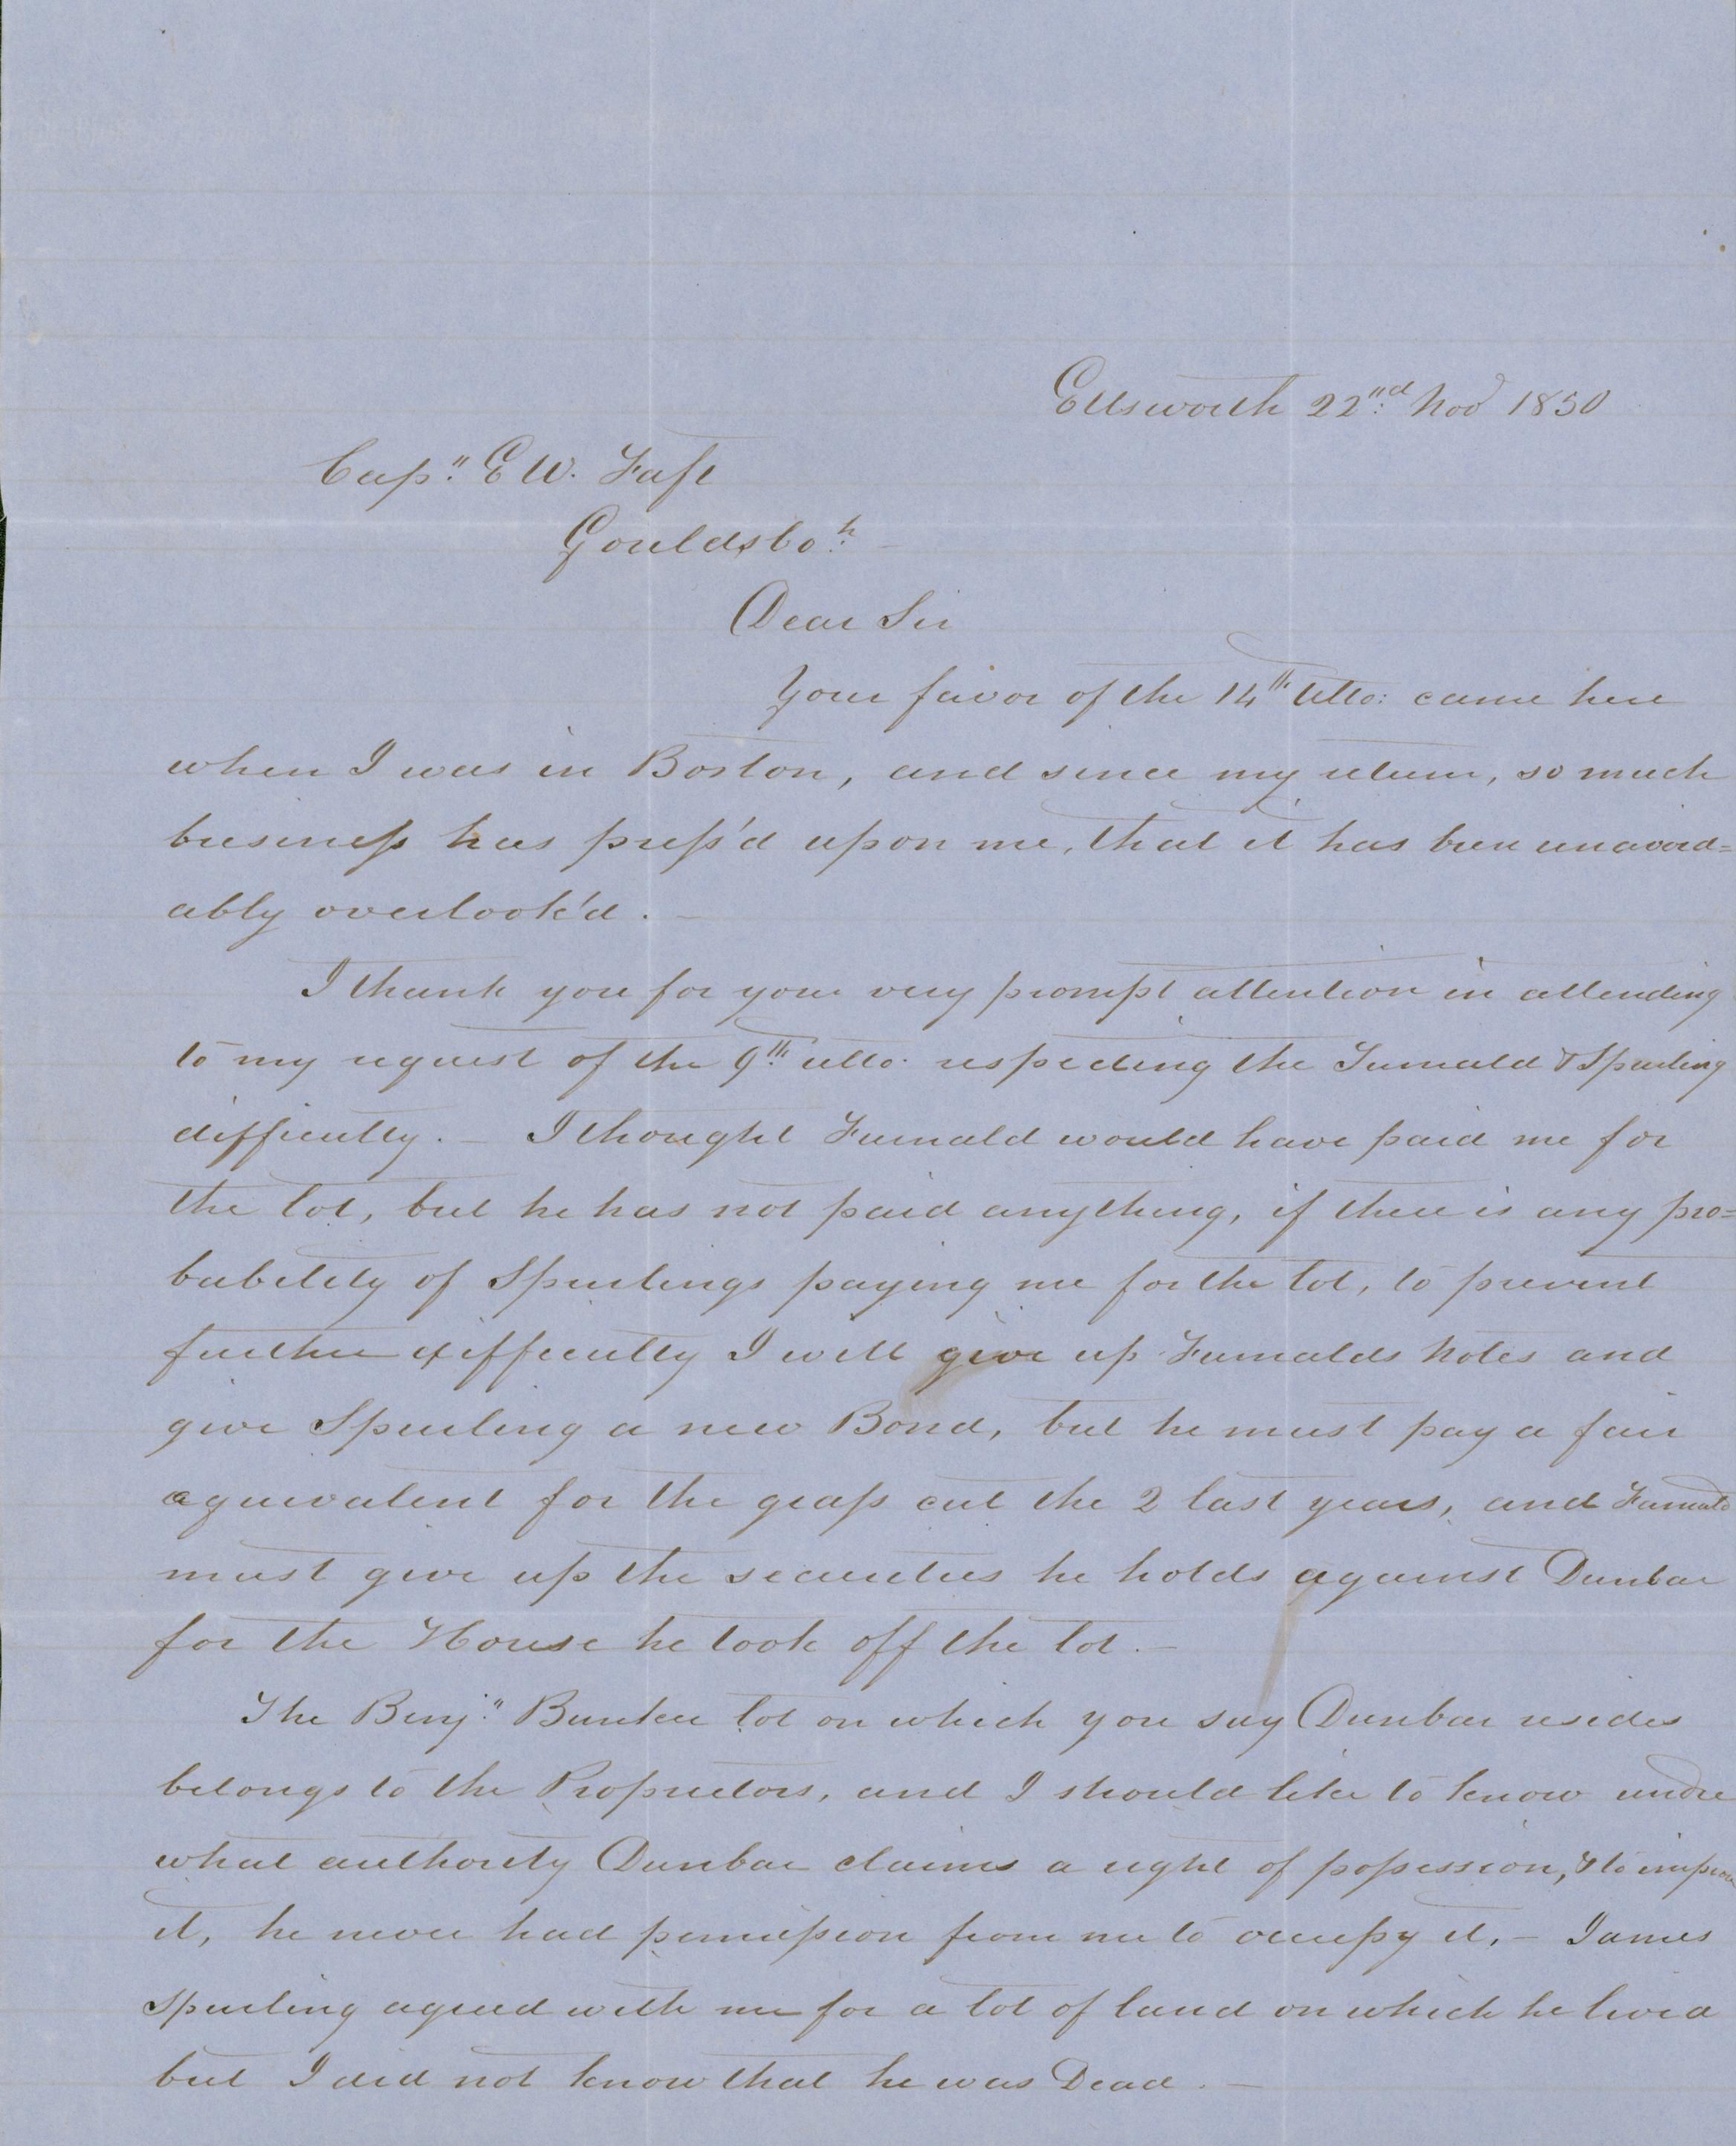 Ellsworth 22nd Nov 1850
Cap.n E W. Taft
Gouldsbo.h
Dear Sir
Your favor of the 14th Ulto: came here
when I was in Boston, and since my return, so much
business has press'd upon me, that it has been unavoid=
ably overlook'd. —
I thank you for your very prompt attention in attending
to my request of the 9th ulto. respecting the Furnald & Spurling
difficulty. — I thought Furnald would have paid me for
the lot, but he has not paid anything, if there is any pro=
bability of Spurlings paying me for the lot, to prevent
further difficulty I will give up Furnalds Notes and
give Spurling a new Bond, but he must pay a fair
equivalent for the grass cut the 2 last years, and Furnald
must give up the securities he holds against Dunbar
for the House he took off the lot. —
The Benj.n Bunker lot on which you say Dunbar resides
belongs to the Proprietors, and I should like to know under
what authority Dunbar claims a right of possession, & to improve
it, he never had permission from me to occupy it, — James
Spurling agreed with me for a lot of land on which he lived
but I did not know that he was Dead. —